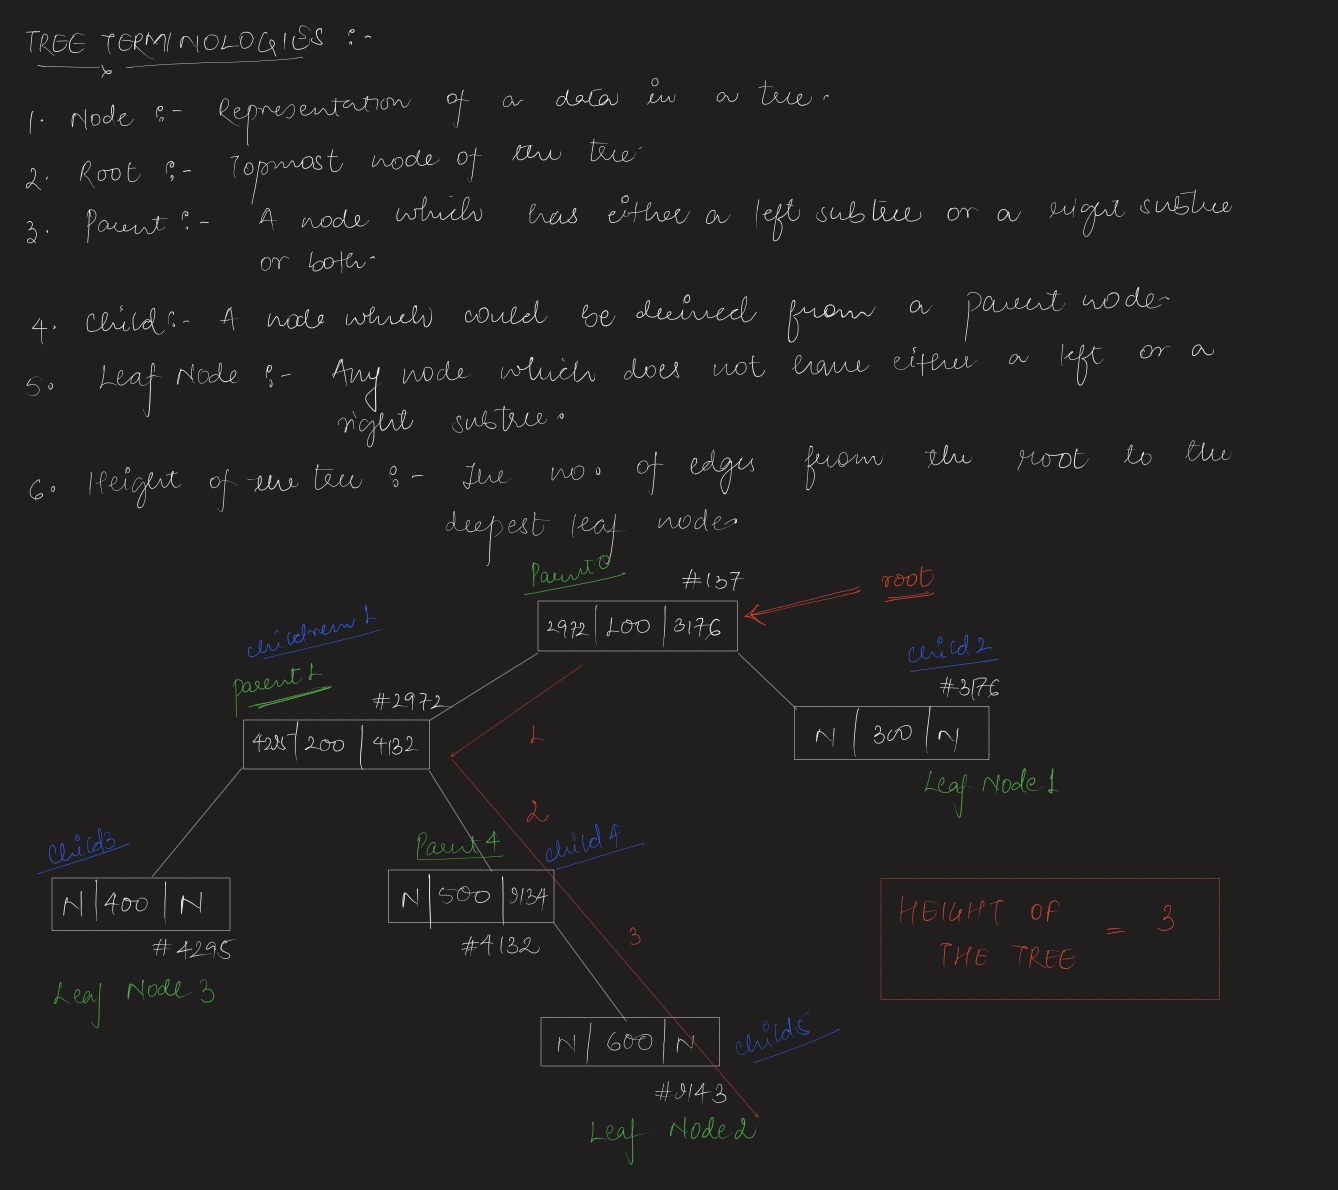 TREE TERMINOLOGIES :-
1. Node :- Representation of a data in a tree.
2. Root :- Topmost node of the tree.
3. Parent :- A node which has either a left subtree or a right subtree
or both.
4. Child :- A node which could be derived from a parent node.
5. Leaf Node :- Any node which does not have either a left or a
right subtree.
6. Height of the tree :- The no. of edges from the root to the
deepest leaf node.
Parent 0
#137
root
2972 | 100 | 3176
children 1
parent 1
#2972
child 2
#3176
4295 | 200 | 4132
N | 300 | N
1
Leaf Node 1
2
Child 3
Parent 4
child 4
N | 400 | N
N | 500 | 9134
#4295
#4132
3
HEIGHT OF
THE TREE = 3
Leaf Node 3
N | 600 | N
child 5
#9143
Leaf Node 2